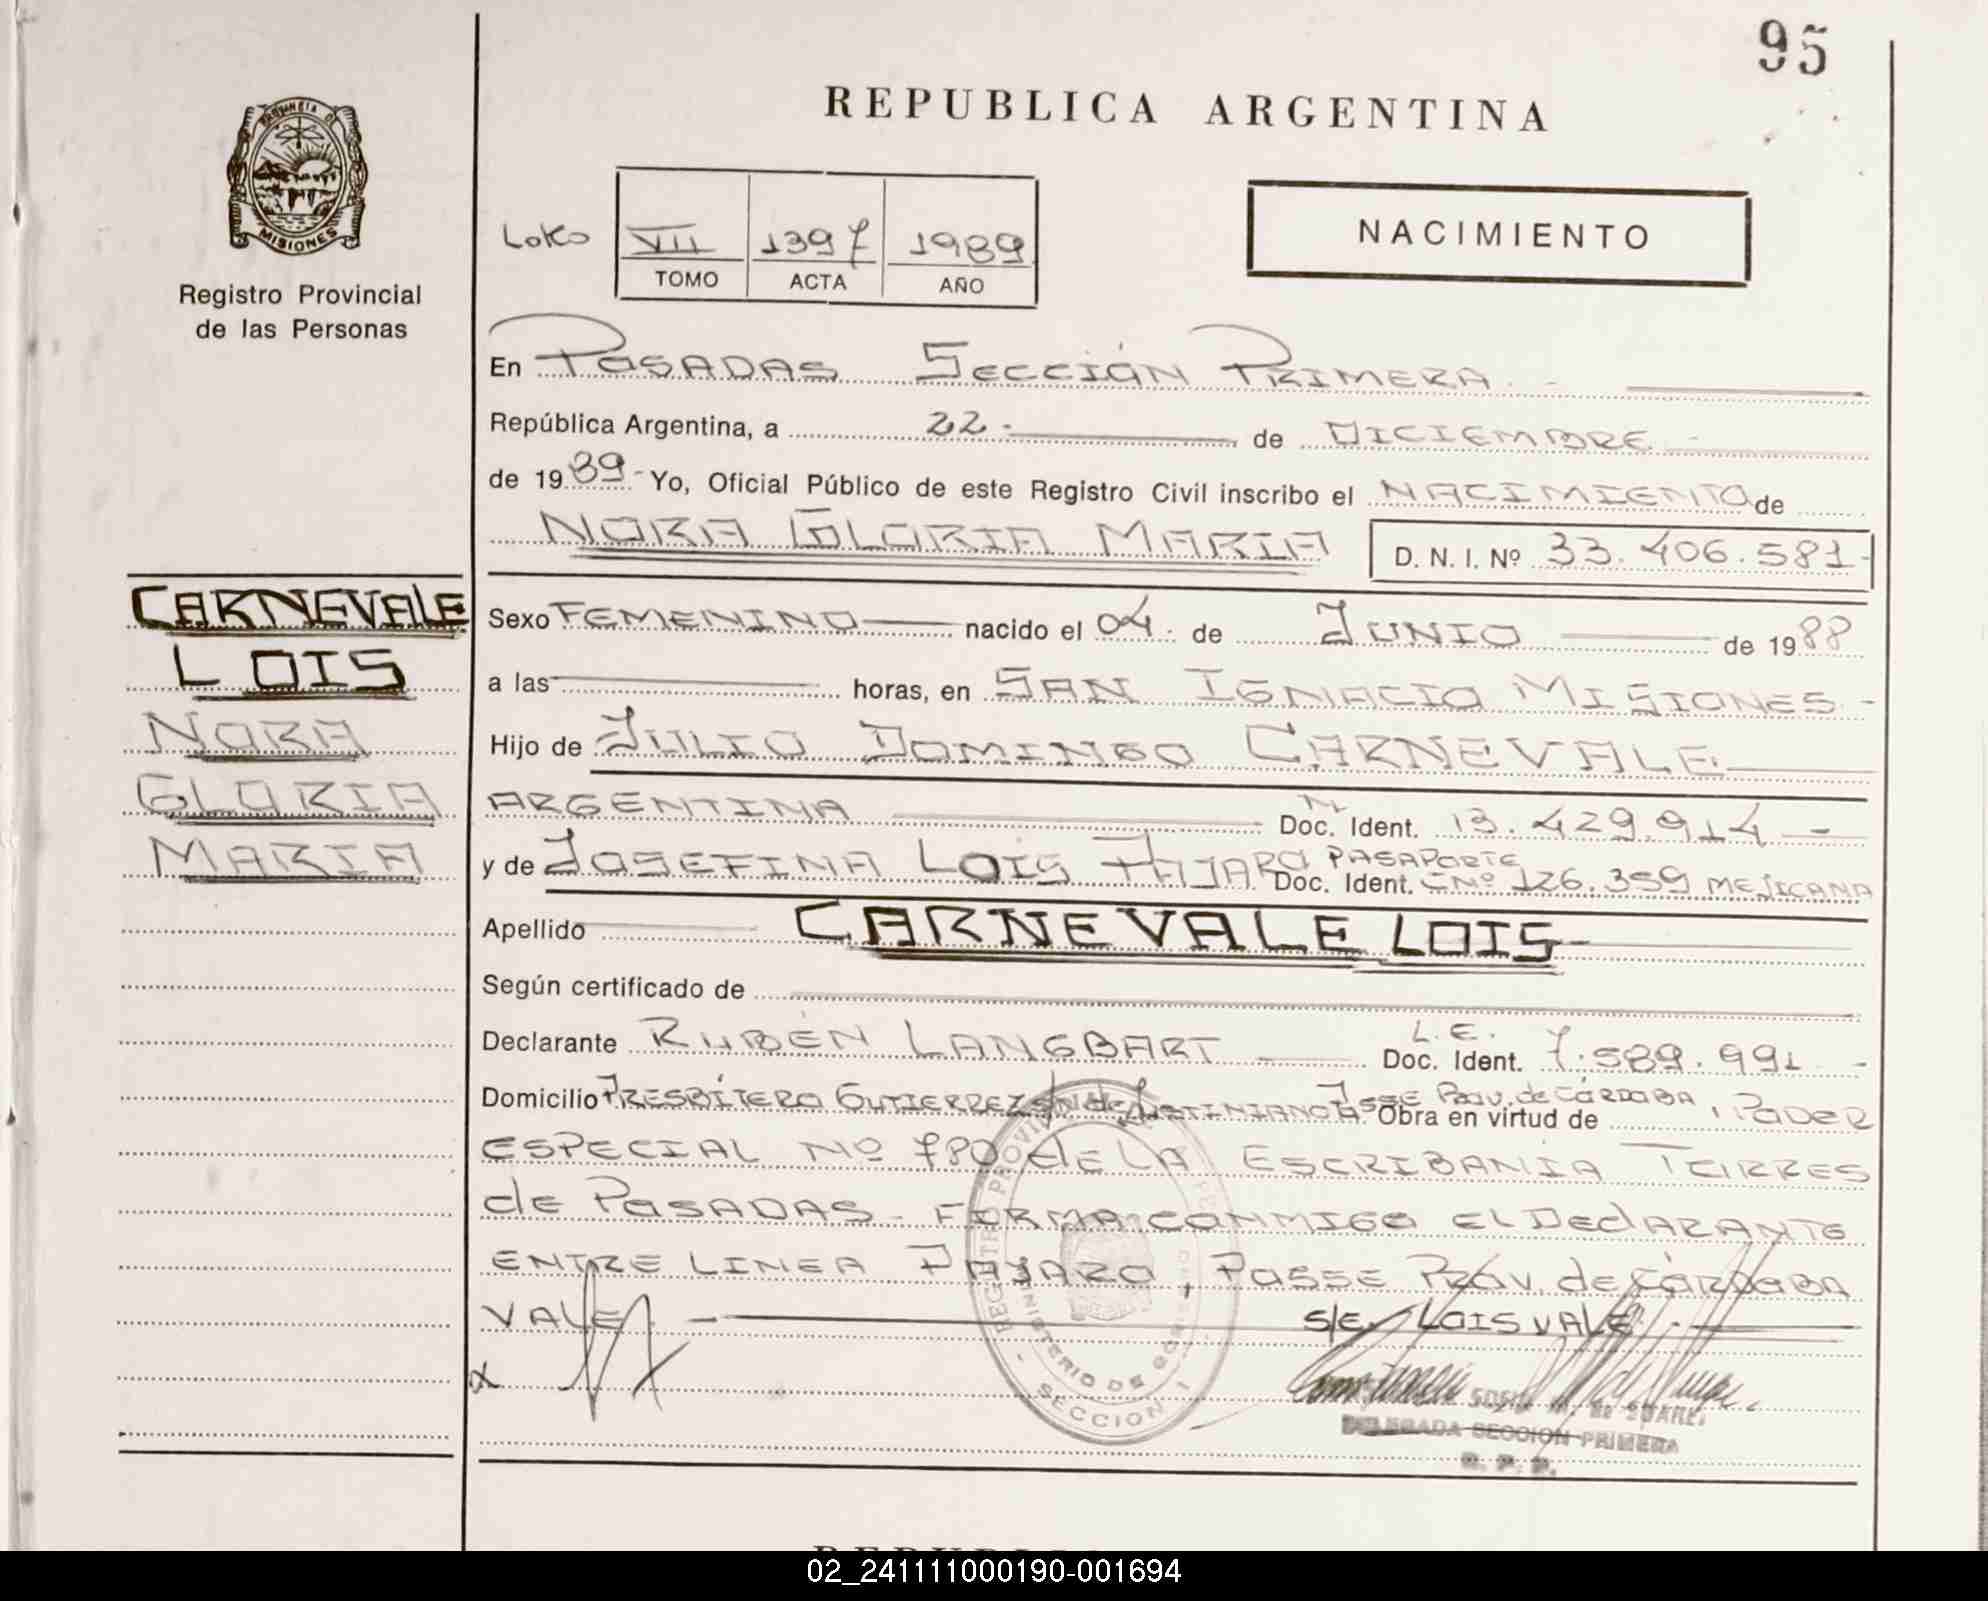 95
PROVINCIA DE
MISIONES
Registro Provincial
de las Personas
REPUBLICA ARGENTINA
VII 1397 1989
TOMO ACTA AÑO
NACIMIENTO
En POSADAS SECCIÓN PRIMERA
República Argentina, a 22 de DICIEMBRE
de 1989 Yo, Oficial Público de este Registro Civil inscribo el NACIMIENTO de
NORA GLORIA MARIA D. N. I. Nº 33.406.581
CARNEVALE
LOIS
NORA
GLORIA
MARIA
Sexo FEMENINO nacido el 04 de JUNIO de 1988
a las horas, en SAN IGNACIO MISIONES
Hijo de JULIO DOMINGO CARNEVALE
ARGENTINA Doc. Ident. 13.429.914
y de JOSEFINA LOIS PAJARO Doc. Ident. PASAPORTE Nº 126.359 MEJICANA
Apellido CARNEVALE LOIS
Según certificado de
Declarante RUBÉN LANGBART Doc. Ident. L.E. 7.589.991
Domicilio PRESBÍTERO GUTIERREZ PASSE Prov. de CÓRDOBA Obra en virtud de PODER
ESPECIAL Nº 780 de LA ESCRIBANIA TORRES
de POSADAS - FIRMA CONMIGO EL DECLARANTE
ENTRE LINEA PAJARO, PASSE PROV. de CÓRDOBA
VALE S/E LOIS VALE
REGISTRO PROVINCIAL
MINISTERIO DE GOBIERNO
SECCION 1
DELEGADA SECCION PRIMERA
R. P. P.
02_241111000190-001694